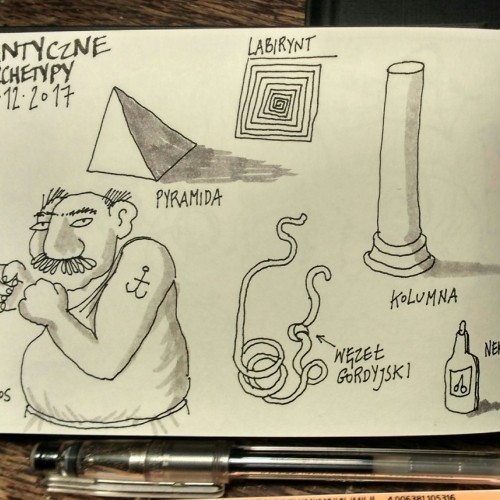 NTYCZNE
CHETYPY
12.2017
LABIRYNT
PYRAMIDA
KOLUMNA
WĘZEŁ
GORDYJSKI
NEK
OS
4 006381 105316